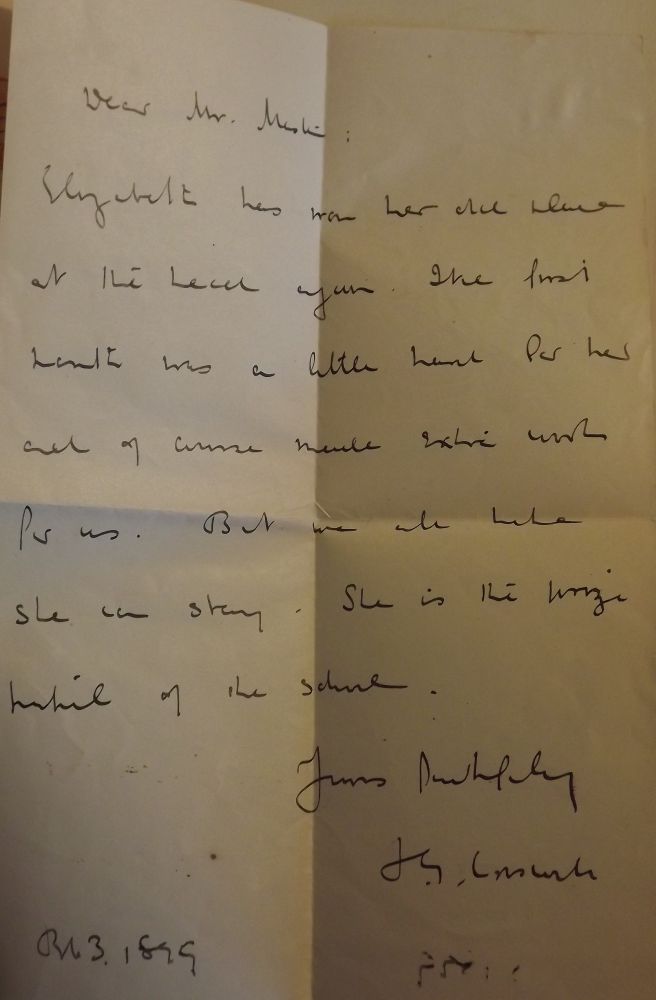 Dear Mr.
Elizabeth has won her old place
at the head again. The first
month was a little hard for her
and of course made extra work
for us. But we all hope
she can stay. She is the prize
pupil of the school.
Yours Faithfully
3. 1899